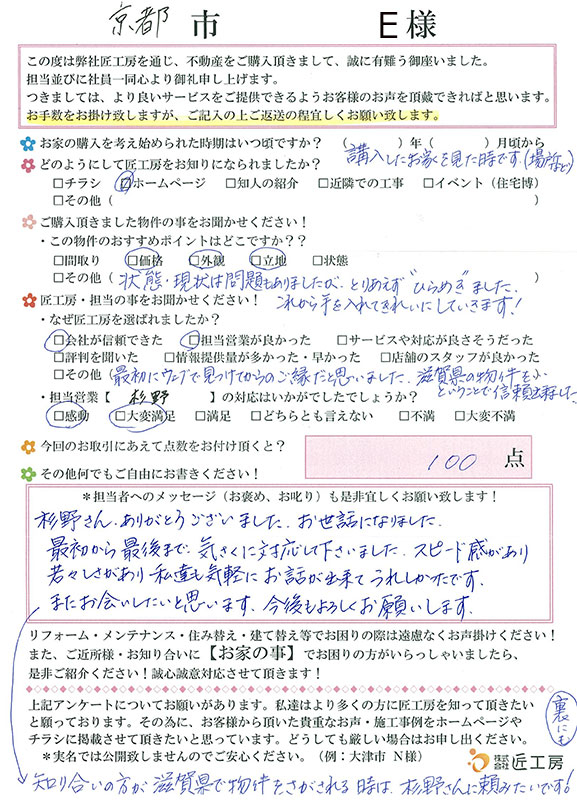 京都 市 E様
この度は弊社匠工房を通じ、不動産をご購入頂きまして、誠に有難う御座いました。
担当並びに社員一同心より御礼申し上げます。
つきましては、より良いサービスをご提供できるようお客様のお声を頂戴できればと思います。
お手数をお掛け致しますが、ご記入の上ご返送の程宜しくお願い致します。
お家の購入を考え始められた時期はいつ頃ですか？ （ ）年（ ）月頃から
購入したお家を見た時です(場所など)
どのようにして匠工房をお知りになられましたか？
□チラシ □ホームページ □知人の紹介 □近隣での工事 □イベント（住宅博）
□その他（ ）
ご購入頂きました物件の事をお聞かせください！
・この物件のおすすめポイントはどこですか？？
□間取り □価格 □外観 □立地 □状態
□その他（状態・現状は問題もありましたが、とりあえず"ひらめき"ました。）
これから手を入れてきれいにしていきます！
匠工房・担当の事をお聞かせください！
・なぜ匠工房を選ばれましたか？
□会社が信頼できた □担当営業が良かった □サービスや対応が良さそうだった
□評判を聞いた □情報提供量が多かった・早かった □店舗のスタッフが良かった
□その他（最初にウェブで見つけてからのご縁だと思いました。滋賀県の物件を
ということで信頼出来ました
・担当営業【 杉野 】の対応はいかがでしたでしょうか？
□感動 □大変満足 □満足 □どちらとも言えない □不満 □大変不満
今回のお取引にあえて点数をお付け頂くと？
100 点
その他何でもご自由にお書きください！
＊担当者へのメッセージ（お褒め、お叱り）も是非宜しくお願い致します！
杉野さん、ありがとうございました。お世話になりました。
最初から最後まで気さくに対応して下さいました。スピード感があり
若々しさがあり私達も気軽にお話が出来てうれしかったです。
またお会いしたいと思います。今後もよろしくお願いします。
リフォーム・メンテナンス・住み替え・建て替え等でお困りの際は遠慮なくお声掛けください！
また、ご近所様・お知り合いに【お家の事】でお困りの方がいらっしゃいましたら、
是非ご紹介ください！誠心誠意対応させて頂きます！
上記アンケートについてお願いがあります。私達はより多くの方に匠工房を知って頂きたい
と願っております。その為に、お客様から頂いた貴重なお声・施工事例をホームページや
チラシに掲載させて頂きたいと思っています。どうしても厳しい場合はお申し出ください。
＊実名では公開致しませんのでご安心ください。（例：大津市 N様）
裏にも
株式会社 匠工房
知り合いの方が滋賀県で物件をさがされる時は、杉野さんに頼みたいです！